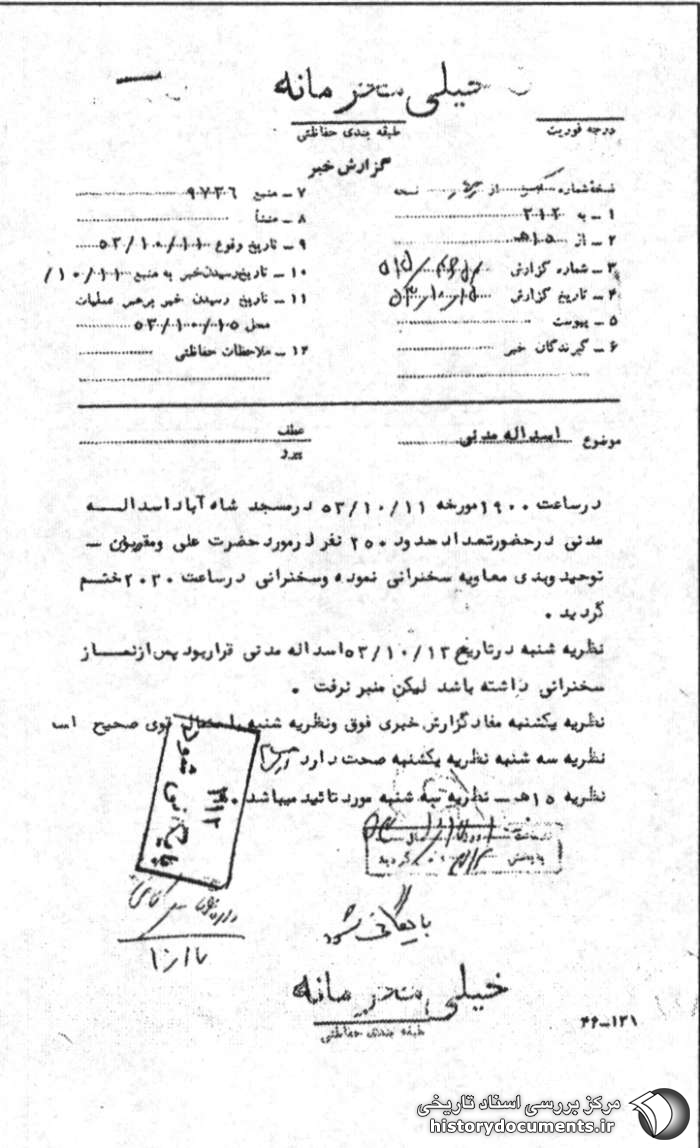 خیلی محرمانه
درجه فوریت
طبقه بندی حفاظتی
گزارش خبر
نسخهٔ شماره از نسخه
۱ ــ به ۳۱۲
۲ ــ از ۱۵ هـ
۳ ــ شماره گزارش
۴ ــ تاریخ گزارش
۵ ــ پیوست
۶ ــ گیرندگان خبر
۷ ــ منبع ۹۷۳۶
۸ ــ منشأ
۹ ــ تاریخ وقوع ۵۳/۱۰/۱۱
۱۰ ــ تاریخ رسیدن خبر به منبع ۱۰/۱۱/
۱۱ ــ تاریخ رسیدن خبر برهبر عملیات
محل ۵۳/۱۰/۱۵
۱۲ ــ ملاحظات حفاظتی
موضوع اسداله مدنی
عطف
پیرو
درساعت ۱۹۰۰ مورخه ۵۳/۱۰/۱۱ درمسجد شاه آباد اسدالــه
مدنی درحضورتعداد حدود ۲۵۰ نفر درمورد حضرت علی ومقربون ــ
توحیدوبدی معاویه سخنرانی نموده وسخنرانی درساعت ۲۰۳۰ ختـم
گردید .
نظریه شنبه درتاریخ ۵۳/۱۰/۱۲ اسداله مدنی قراربود پس ازنمـاز
سخنرانی داشته باشد لیکن منبر نرفت .
نظریه یکشنبه مفادگزارش خبری فوق ونظریه شنبه باحتمال قوی صحیح اس
نظریه سه شنبه نظریه یکشنبه صحت دارد
نظریه ۱۵ هـ ــ نظریه سه شنبه مورد تائید میباشد .
۳۱۲
بایگانی شود
بخش گردید
بایگانی شود
خیلی محرمانه
طبقه بندی حفاظتی
۴۶-۱۲۱
مرکز بررسی اسناد تاریخی
historydocuments.ir